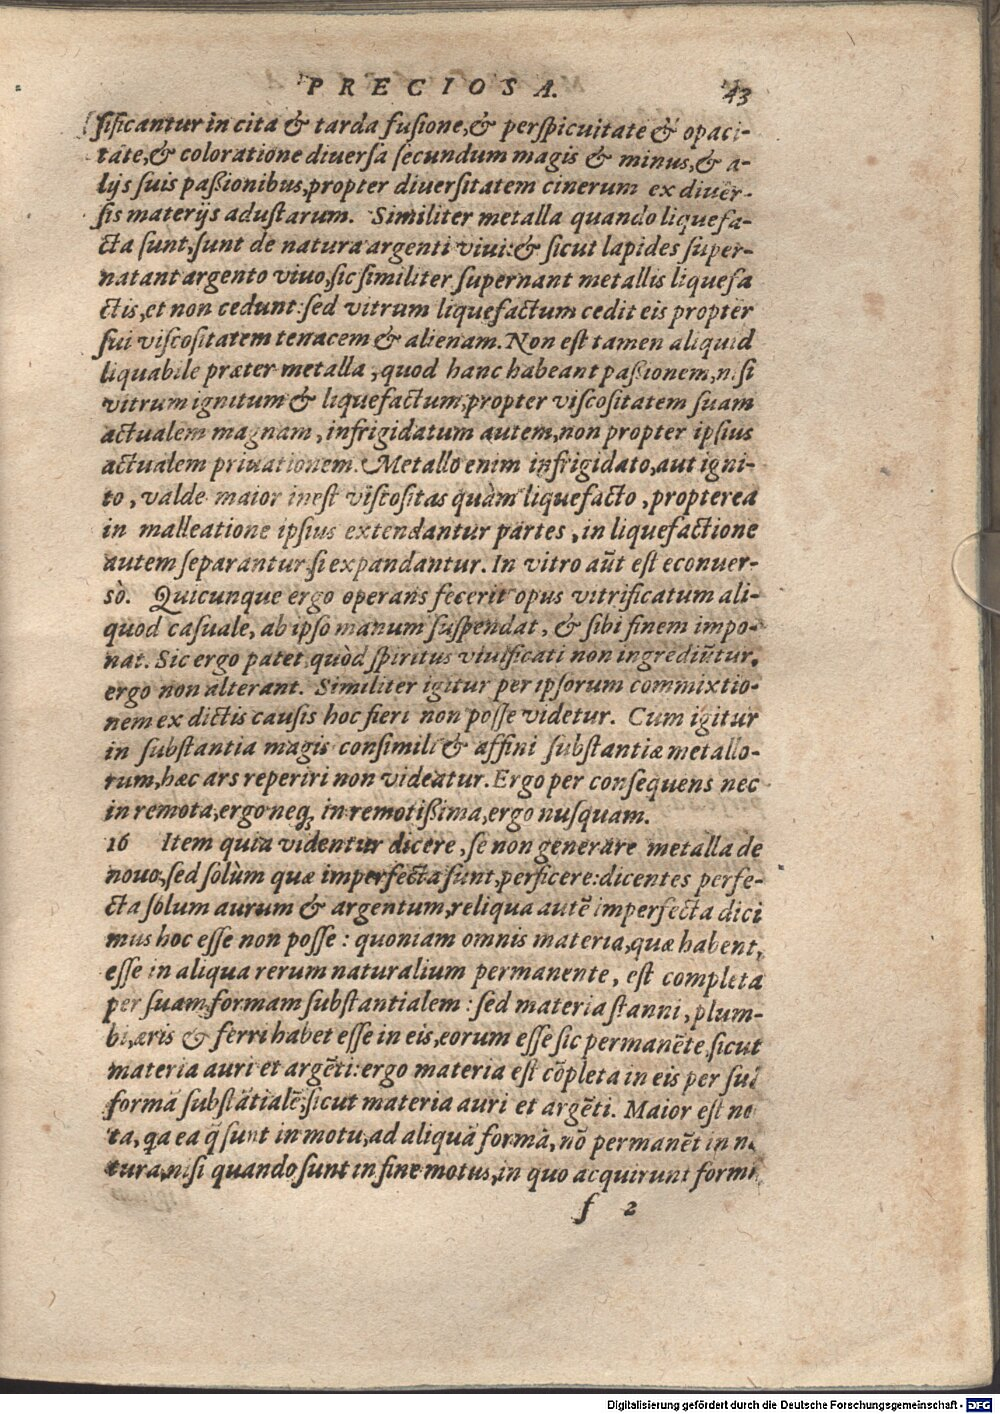 PRECIOSA. 43
sificantur in cita & tarda fusione, & perspicuitate & opaci-
tate, & coloratione diuersa secundum magis & minus, & a-
lijs suis paßionibus, propter diuersitatem cinerum ex diuer-
sis materijs adustarum. Similiter metalla quando liquefa-
cta sunt, sunt de natura argenti viui: & sicut lapides super-
natant argento viuo, sic similiter supernant metallis liquefa
ctis, et non cedunt: sed vitrum liquefactum cedit eis propter
sui viscositatem tenacem & alienam. Non est tamen aliquid
liquabile præter metalla, quod hanc habeant paßionem, nisi
vitrum ignitum & liquefactum, propter viscositatem suam
actualem magnam, infrigidatum autem, non propter ipsius
actualem priuationem. Metallo enim infrigidato, aut igni-
to, valde maior inest viscositas quàm liquefacto, propterea
in malleatione ipsius extendantur partes, in liquefactione
autem separantur, si expandantur. In vitro aũt est econuer-
sò. Quicunque ergo operans fecerit opus vitrificatum ali-
quod casuale, ab ipso manum suspendat, & sibi finem impo-
nat. Sic ergo patet, quòd spiritus viuificati non ingrediũtur,
ergo non alterant. Similiter igitur per ipsorum commixtio-
nem ex dictis causis hoc fieri non posse videtur. Cum igitur
in substantia magis consimili & affini substantiæ metallo-
rum, hæc ars reperiri non videatur. Ergo per consequens nec
in remota, ergo neq; in remotißima, ergo nusquam.
16 Item quia videntur dicere, se non generare metalla de
nouo, sed sólùm quæ imperfecta sunt, perficere: dicentes perfe-
cta sólum aurum & argentum, reliqua autē imperfecta dici
mus hoc esse non posse: quoniam omnis materia, quæ habent,
esse in aliqua rerum naturalium permanente, est completa
per suam formam substantialem: sed materia stanni, plum-
bi, æris & ferri habet esse in eis, eorum esse sic permanēte, sicut
materia auri et argēti: ergo materia est cōpleta in eis per suā
formā substātialē, sicut materia auri et argēti. Maior est no
ta, qa ea q̃ sunt in motu, ad aliquā formā, nō permanēt in na
tura, nisi quando sunt in fine motus, in quo acquirunt formā
f 2
Digitalisierung gefördert durch die Deutsche Forschungsgemeinschaft - DFG